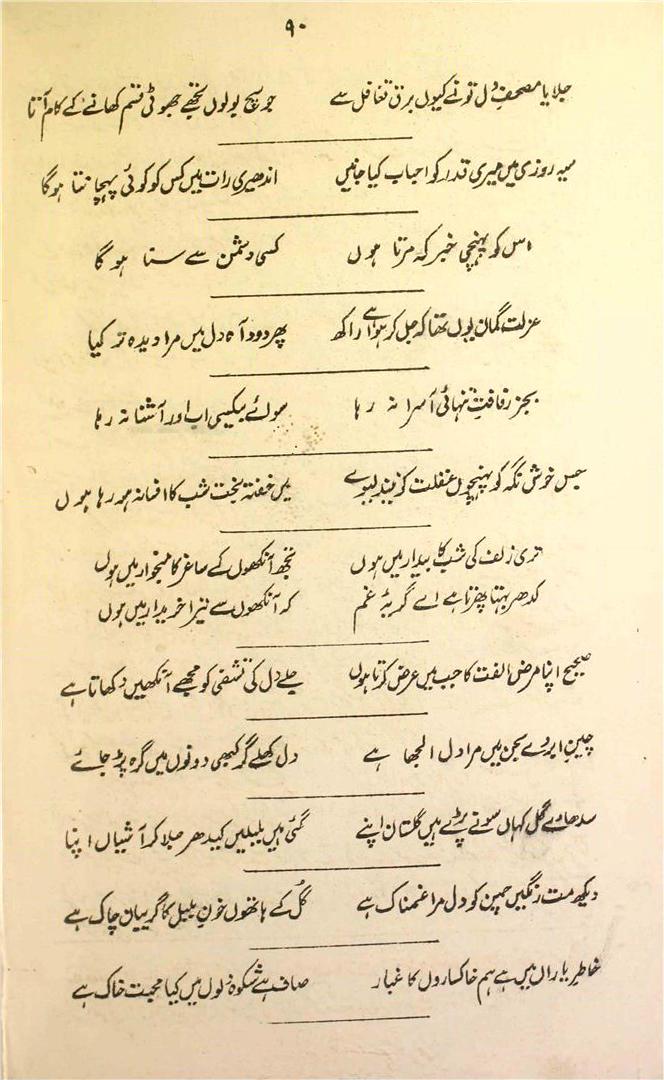 ۹۰
جلایا مصحفِ دل تو نے کیوں برقِ تغافل سے جو سچ بولوں تجھے جھوٹی قسم کھانے کے کام آتا
سیہ روزی میں میری قدر کو احباب کیا جانیں اندھیری رات میں کس کو کوئی پہچانتا ہوگا
اس کو پہنچی خبر کہ مرتا ہوں کسی دشمن سے سنا ہوگا
عزلت گمان یوں تھا کہ جل کر ہوا ہے راکھ پھر دود آہ دل میں مرا دیدہ تر کیا
بجز رفاقتِ تنہائی آسرا نہ رہا سوائے بیکسی اب اور آشنا نہ رہا
جس خوش نگہ کو پہنچوں غفلت کی نیند لیوے میں خفتہ بخت شب کا افسانہ ہو رہا ہوں
تری زلف کی شب کا بیدار میں ہوں تجھ آنکھوں کے ساغر کا میخوار میں ہوں
کدھر بہتا پھرتا ہے اے گریۂ غم کہ آنکھوں سے تیرا خریدار میں ہوں
صحیح اپنا مرض الفت کا جب میں عرض کرتا ہوں جلے دل کی تشفی کو مجھے آنکھیں دکھاتا ہے
چینِ ابروے سجن میں مرا دل الجھا ہے دل کھلے گر کبھی دونوں میں گرہ پڑ جائے
سدھارے گل کہاں سونے پڑے ہیں گلستان اپنے گئی ہیں بلبلیں کیدھر جلا کر آشیاں اپنا
دیکھ مت رنگیں چمن کو دل مرا غمناک ہے گل کے ہاتھوں خونِ بلبل کا گریبان چاک ہے
خاطرِ یاراں میں ہے ہم خاکساروں کا غبار صاف ہے شکوہ دلوں میں کیا محبت خاک ہے